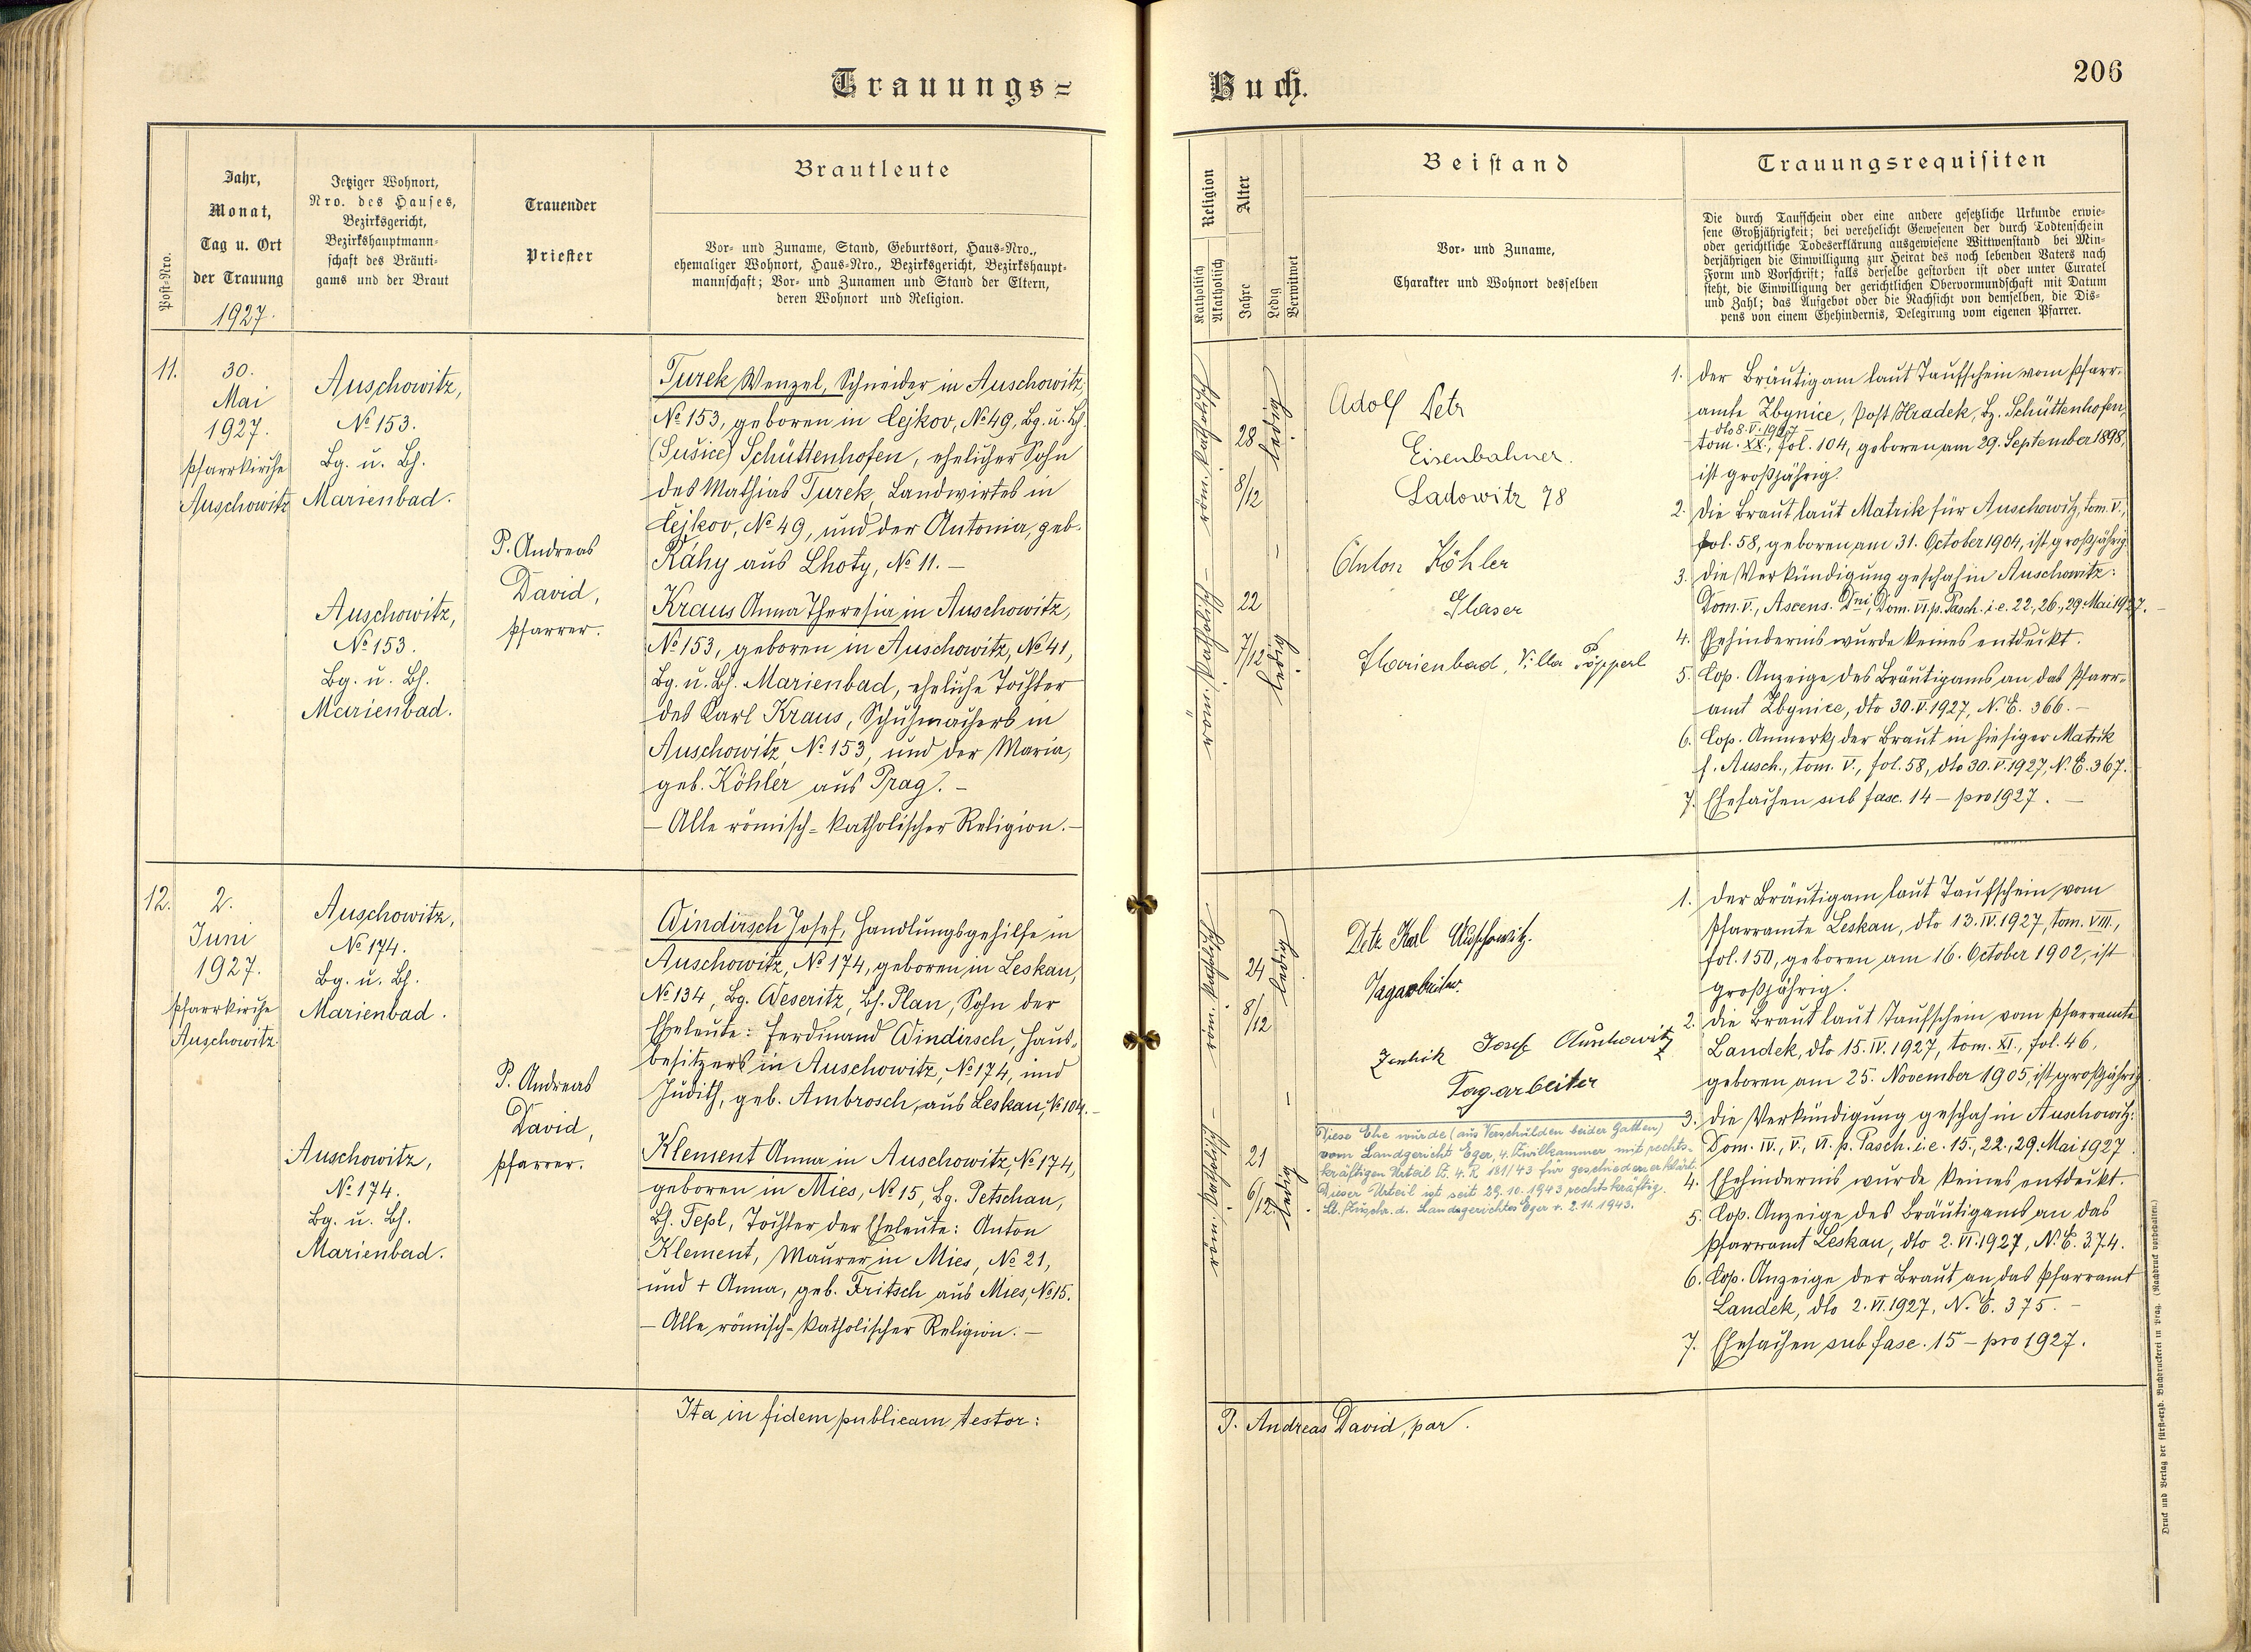 Trauungs=
Jahr,
Monat,
Tag u. Ort
der Trauung
1927.
Post-Nro.
Jetziger Wohnort,
Nro. des Hauses,
Bezirksgericht,
Bezirkshauptmann-
schaft des Bräuti-
gams und der Braut
Trauender
Priester
Brautleute
Vor- und Zuname, Stand, Geburtsort, Haus-Nro.,
ehemaliger Wohnort, Haus-Nro., Bezirksgericht, Bezirkshaupt-
mannschaft; Vor- und Zunamen und Stand der Eltern,
deren Wohnort und Religion.
11.
30.
Mai
1927.
Pfarrkirche
Auschowitz
Auschowitz,
No 153.
Bg. u. Bh.
Marienbad.
Auschowitz,
No 153.
Bg. u. Bh.
Marienbad.
P. Andreas
David,
Pfarrer.
Turek Wenzel, Schneider in Auschowitz
No 153, geboren in Čejkov, No 49, Bg. u. Bh.
(Sušice) Schüttenhofen, ehelicher Sohn
des Mathias Turek, Landwirtes in
Čejkov, No 49, und der Antonia, geb.
Ráhy aus Lhoty, No 11. –
Kraus Anna Theresia in Auschowitz,
No 153, geboren in Auschowitz, No 41,
Bg. u. Bh. Marienbad, eheliche Tochter
des Karl Kraus, Schuhmachers in
Auschowitz, No 153, und der Maria,
geb. Köhler aus Prag. –
– Alle römisch-katholischer Religion. –
12.
2.
Juni
1927.
Pfarrkirche
Auschowitz
Auschowitz,
No 174.
Bg. u. Bh.
Marienbad.
Auschowitz,
No 174.
Bg. u. Bh.
Marienbad.
P. Andreas
David,
Pfarrer.
Windirsch Josef, Handlungsgehilfe in
Auschowitz, No 174, geboren in Leskau,
No 134, Bg. Weseritz, Bh. Plan, Sohn der
Eheleute: Ferdinand Windirsch, Haus-
besitzers in Auschowitz, No 174, und
Judith, geb. Ambrosch, aus Leskau, No 104. –
Klement Anna in Auschowitz, No 174,
geboren in Mies, No 15, Bg. Petschau,
Bh. Tepl, Tochter der Eheleute: Anton
Klement, Maurer in Mies, No 21,
und + Anna, geb. Fritsch aus Mies, No 15.
– Alle römisch-katholischer Religion. –
Ita in fidem publicam testor:
Buch.
206
Religion
Katholisch
Akatholisch
Alter
Jahre
Ledig
Verwitwet
Beistand
Vor- und Zuname,
Charakter und Wohnort desselben
Trauungsrequisiten
Die durch Taufschein oder eine andere gesetzliche Urkunde erwie-
sene Großjährigkeit; bei verehelicht Gewesenen der durch Todtenschein
oder gerichtliche Todeserklärung ausgewiesene Wittwenstand bei Min-
derjährigen die Einwilligung zur Heirat des noch lebenden Vaters nach
Form und Vorschrift; falls derselbe gestorben ist oder unter Curatel
steht, die Einwilligung der gerichtlichen Obervormundschaft mit Datum
und Zahl; das Aufgebot oder die Nachsicht von demselben, die Dis-
pens von einem Ehehindernis, Delegirung vom eigenen Pfarrer.
28
8/12
ledig.
22
7/12
ledig.
Adolf Petr
Eisenbahner.
Ladowitz 78
Anton Köhler
Glaser
Marienbad, Villa Pöpperl
1. Der Bräutigam laut Taufschein vom Pfarr-
amte Zbynice, Post Hradek, Bz. Schüttenhofen,
dto 8. V. 1927
tom. XX., fol. 104, geboren am 29. September 1898,
ist großjährig.
2. Die Braut laut Matrik für Auschowitz, tom. V.,
fol. 58, geboren am 31. October 1904, ist großjährig.
3. Die Verkündigung geschah in Auschowitz:
Dom. V., Ascens. Dni, Dom. VI. p. Pasch. i. e. 22., 26., 29. Mai 1927. –
4. Ehehindernis wurde keines entdeckt.
5. Cop. Anzeige des Bräutigams an das Pfarr-
amt Zbynice, dto 30. V. 1927, N. E. 366. –
6. Cop. Anmerk. der Braut in hiesiger Matrik
f. Ausch., tom. V., fol. 58, dto 30. V. 1927, N. E. 367.
7. Ehesachen sub fasc. 14 – pro 1927. –
24
8/12
ledig.
21
6/12
ledig.
Karl Auschowitz.
Tagarbeiter.
Josef Auschowitz
Tagarbeiter
Diese Ehe wurde (aus Verschulden beider Gatten)
vom Landgericht Eger, 4. Zivilkammer mit rechts-
kräftigen Urteil Z. 4. R 181/43 für geschieden erklärt.
Dieser Urteil ist seit 29. 10. 1943 rechtskräftig.
Lt. Zuschr. d. Landgerichtes Eger v. 2. 11. 1943.
1. Der Bräutigam laut Taufschein vom
Pfarramte Leskau, dto 13. IV. 1927, tom. VIII.,
fol. 150, geboren am 16. October 1902, ist
großjährig.
2. Die Braut laut Taufschein vom Pfarramte
Landek, dto 15. IV. 1927, tom. XI., fol. 46,
geboren am 25. November 1905, ist großjährig.
3. Die Verkündigung geschah in Auschowitz:
Dom. IV., V., VI. p. Pasch. i. e. 15., 22., 29. Mai 1927.
4. Ehehindernis wurde keines entdeckt.
5. Cop. Anzeige des Bräutigams an das
Pfarramt Leskau, dto 2. VI. 1927, N. E. 374.
6. Cop. Anzeige der Braut an das Pfarramt
Landek, dto 2. VI. 1927, N. E. 375. –
7. Ehesachen sub fasc. 15 – pro 1927.
P. Andreas David, par.
Druck und Verlag der fürst-erzb. Buchdruckerei in Prag. (Nachdruck vorbehalten.)